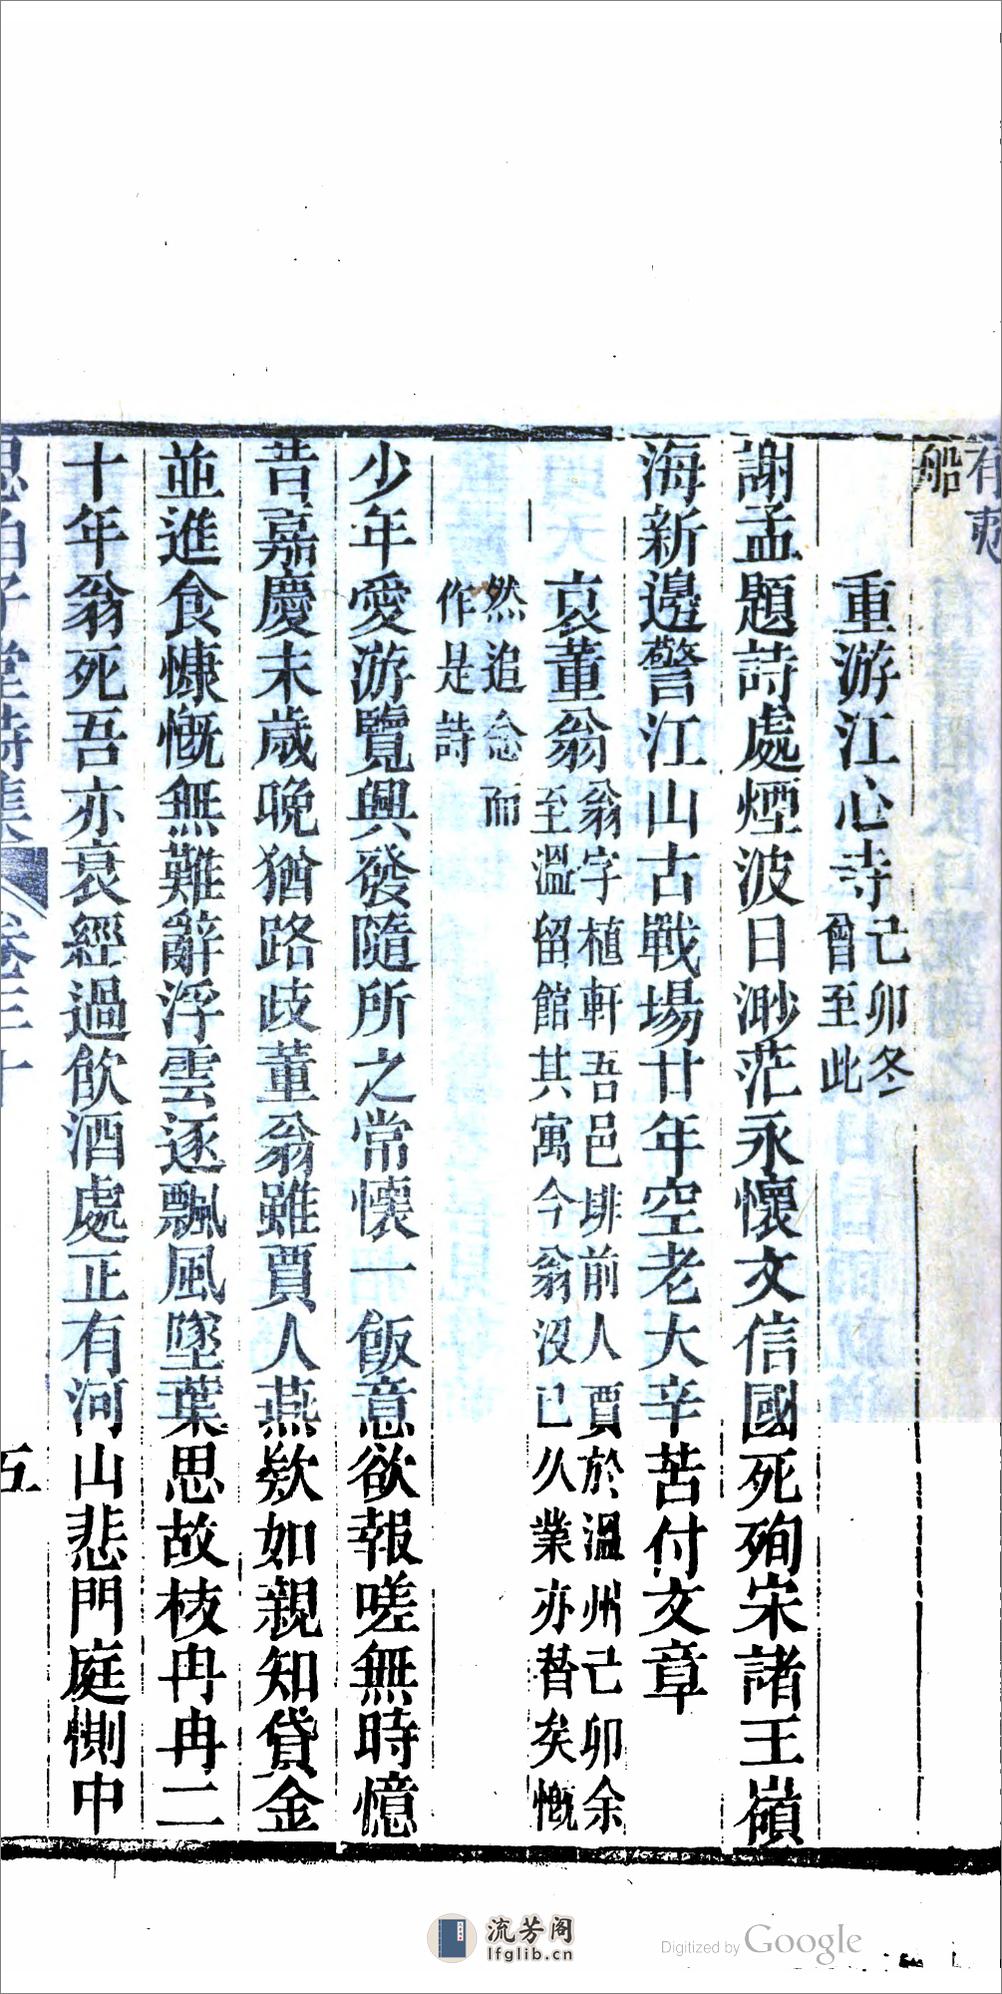 有
船
重游江心寺 己卯冬
曾至此
謝孟題詩處煙波日渺茫永懷文信國死殉宋諸王嶺
海新邊警江山古戰場廿年空老大辛苦付文章
哀董翁 翁字植軒吾邑排前人賈於溫州己卯余
至溫留館其寓今翁沒已久業亦替矣慨
然追念而
作是詩
少年愛游覽興發隨所之常懷一飯意欲報嗟無時憶
昔嘉慶末歲晚猶路歧董翁雖賈人燕欵如親知貸金
並進食慷慨無難辭浮雲逐飄風墜葉思故枝冉冉二
十年翁死吾亦衰經過飲酒處正有河山悲門庭惻中
思伯子堂詩集 卷三十 五
流芳阁
lfglib.cn
Digitized by Google